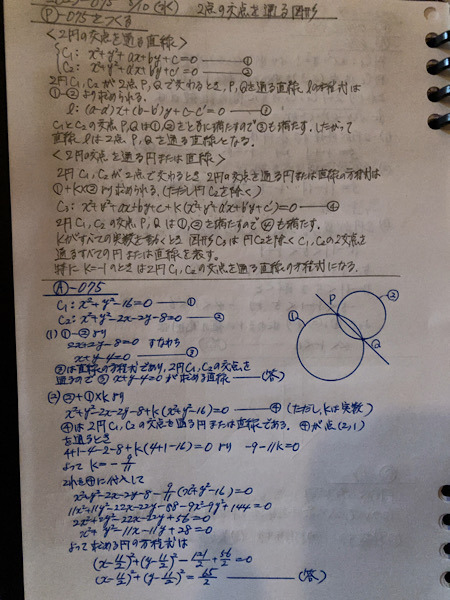 5/10 (水) 2点の交点を通る図形
Ⓟ-075をつくる
<2円の交点を通る直線>
C₁: x²+y²+ax+by+c=0 ―①
C₂: x²+y²+a'x+b'y+c'=0 ―②
2円C₁,C₂が2点P,Qで交わるとき、P,Qを通る直線lの方程式は
①-②より求められる。
l: (a-a')x+(b-b')y+c-c'=0 ―③
C₁とC₂の交点P,Qは①,②をともに満たすので③も満たす。したがって
直線lは2点P,Qを通る直線となる。
<2円の交点を通る円または直線>
2円C₁,C₂が2点で交わるとき 2円の交点を通る円または直線の方程式は
①+k×②より求められる。(ただし円C₂を除く)
C₃: x²+y²+ax+by+c+k(x²+y²+a'x+b'y+c')=0 ―④
2円C₁,C₂の交点P,Qは①,②を満たすので④も満たす。
kがすべての実数を動くとき 図形C₃は円C₂を除くC₁,C₂の2交点を
通るすべての円または直線を表す。
特にk=-1のときは2円C₁,C₂の交点を通る直線の方程式になる。
Ⓐ-075
C₁: x²+y²-16=0 ―①
C₂: x²+y²-2x-2y-8=0 ―②
(1) ①-②より
2x+2y-8=0 すなわち
x+y-4=0 ―③
③は直線の方程式であり、2円C₁,C₂の交点を
通るので③ x+y-4=0が求める直線 ―(答)
(2) ②+①×kより
x²+y²-2x-2y-8+k(x²+y²-16)=0 ―④ (ただし、kは実数)
④は2円C₁,C₂の交点を通る円または直線である。④が点(2,1)
を通るとき
4+1-4-2-8+k(4+1-16)=0 より -9-11k=0
よって k=-9/11
これを④に代入して
x²+y²-2x-2y-8-9/11(x²+y²-16)=0
11x²+11y²-22x-22y-88-9x²-9y²+144=0
2x²+2y²-22x-22y+56=0
x²+y²-11x-11y+28=0
よって求める円の方程式は
(x-11/2)²+(y-11/2)²-121/2+56/2=0
(x-11/2)²+(y-11/2)²=65/2 ―(答)
①
P
②
Q